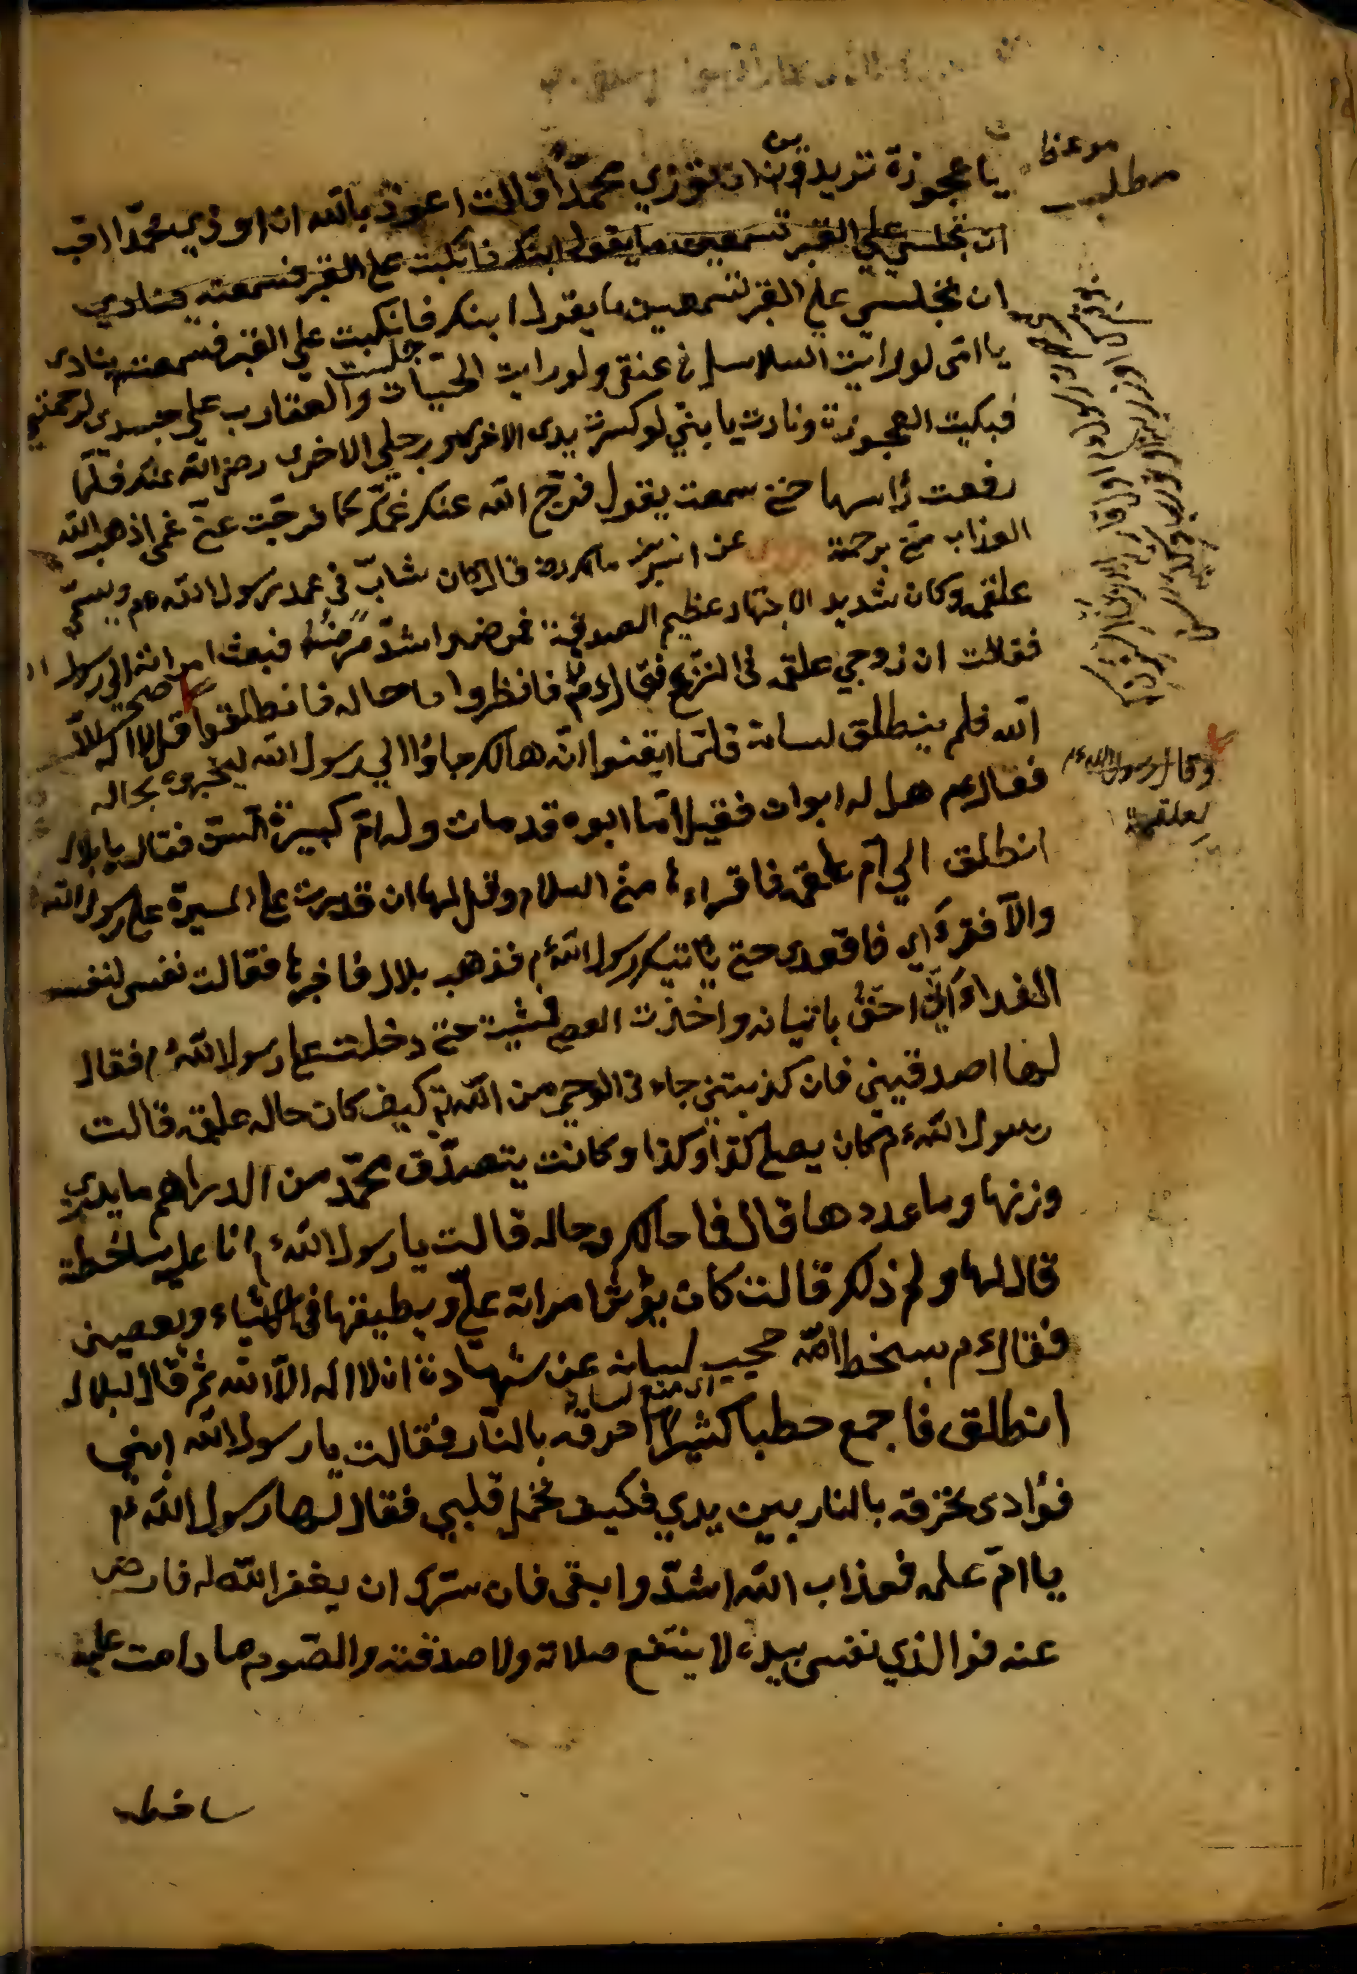 موعظ
مطلب
يا عجوزة تريدين ان تؤذي محمدا قالت اعوذ بالله ان اوذي محمدا اقب
ان تجلسي علي القبر تسمعين ما يقول ابنك فانكبت علي القبر فسمعته ينادي
ان تجلسي علي القبر لتسمعين ما يقول ابنك فانكبت علي القبر فسمعته ينادى
يا امّى لو رايت السلاسل في عنقى ولو رايت الحيّات والعقارب على جسدى لرحمتني
فبكيت العجوزة ونادت يا بنيّ لو كسرت يدى الاخرى ورجلي الاخرى رضى الله عنك فلمّا
رفعت رأسها حتى سمعت يقول فرّج الله عنك غمّك كما فرجت عنّي غمى اذهب الله
العذاب منّي برحمته عن انس بن مالك رضه قال كان شابّ فى عهد رسول الله عم ويسمّى
علقمه وكان شديد الاجتهاد عظيم الصدقة فمرض واشدّ مرضه فبعث امراته الى رسول ا
فقالت ان زوجي علقمه فى النزع فقال عم فانظروا ما حاله فانطلقوا قل لا اله الّا
الله فلم ينطلق لسانه فلمّا ايقنوا انّه هالك جاؤا الي رسول الله ليخبروه بحاله
وقال رسول الله عم
لعلقمة
فقال عم هل له ابوان فقيل امّا ابوه قد مات وله امّ كبيرة السّن فقال يا بلال
انطلق الي امّ علقمه فاقراءها منّي السلام وقل لها ان قدرت على المسيرة علي رسول الله
والّا فقرّي اى فاقعدى حتى ياتيك رسول الله عم فذهب بلال فاخبرها فقالت نفسى لنفسه
الفداء انّي احقّ باتيانه واخذت العصى فمشيت حتى دخلت على رسول الله عم فقال
لها اصدقينى فان كذبتني جاء نى الوحي من الله تع كيف كان حاله علقمه قالت
رسول الله عم كان يصلى كذا وكذا وكانت يتصدّق محمّد من الدراهم ما يدرى
وزنها وما عددها قال فما حالك وحاله قالت يا رسول الله عم انا عليه ساخطة
قال لها ولم ذلك قالت كان يؤثر امراته عليّ ويطيقها فى الاشياء ويعصينى
فقال عم سخط الله حجب لسانه عن شهادة ان لا اله الّا الله ثم قال لبلال
اى منع لسانه
انطلق فاجمع حطبا كثيرا احرقه بالنّار فقالت يا رسول الله ابني
فؤادى تحرقه بالنار بين يدي فكيف تحمل قلبي فقال لها رسول الله عم
يا امّ علمه فعذاب الله اشدّ وابقى فان سرّك ان يغفر الله له فارض
عنه فوالذي نفسى بيده لا ينتفع صلاته ولا صدقته والصّوم ما دامت عليه
ساخطه